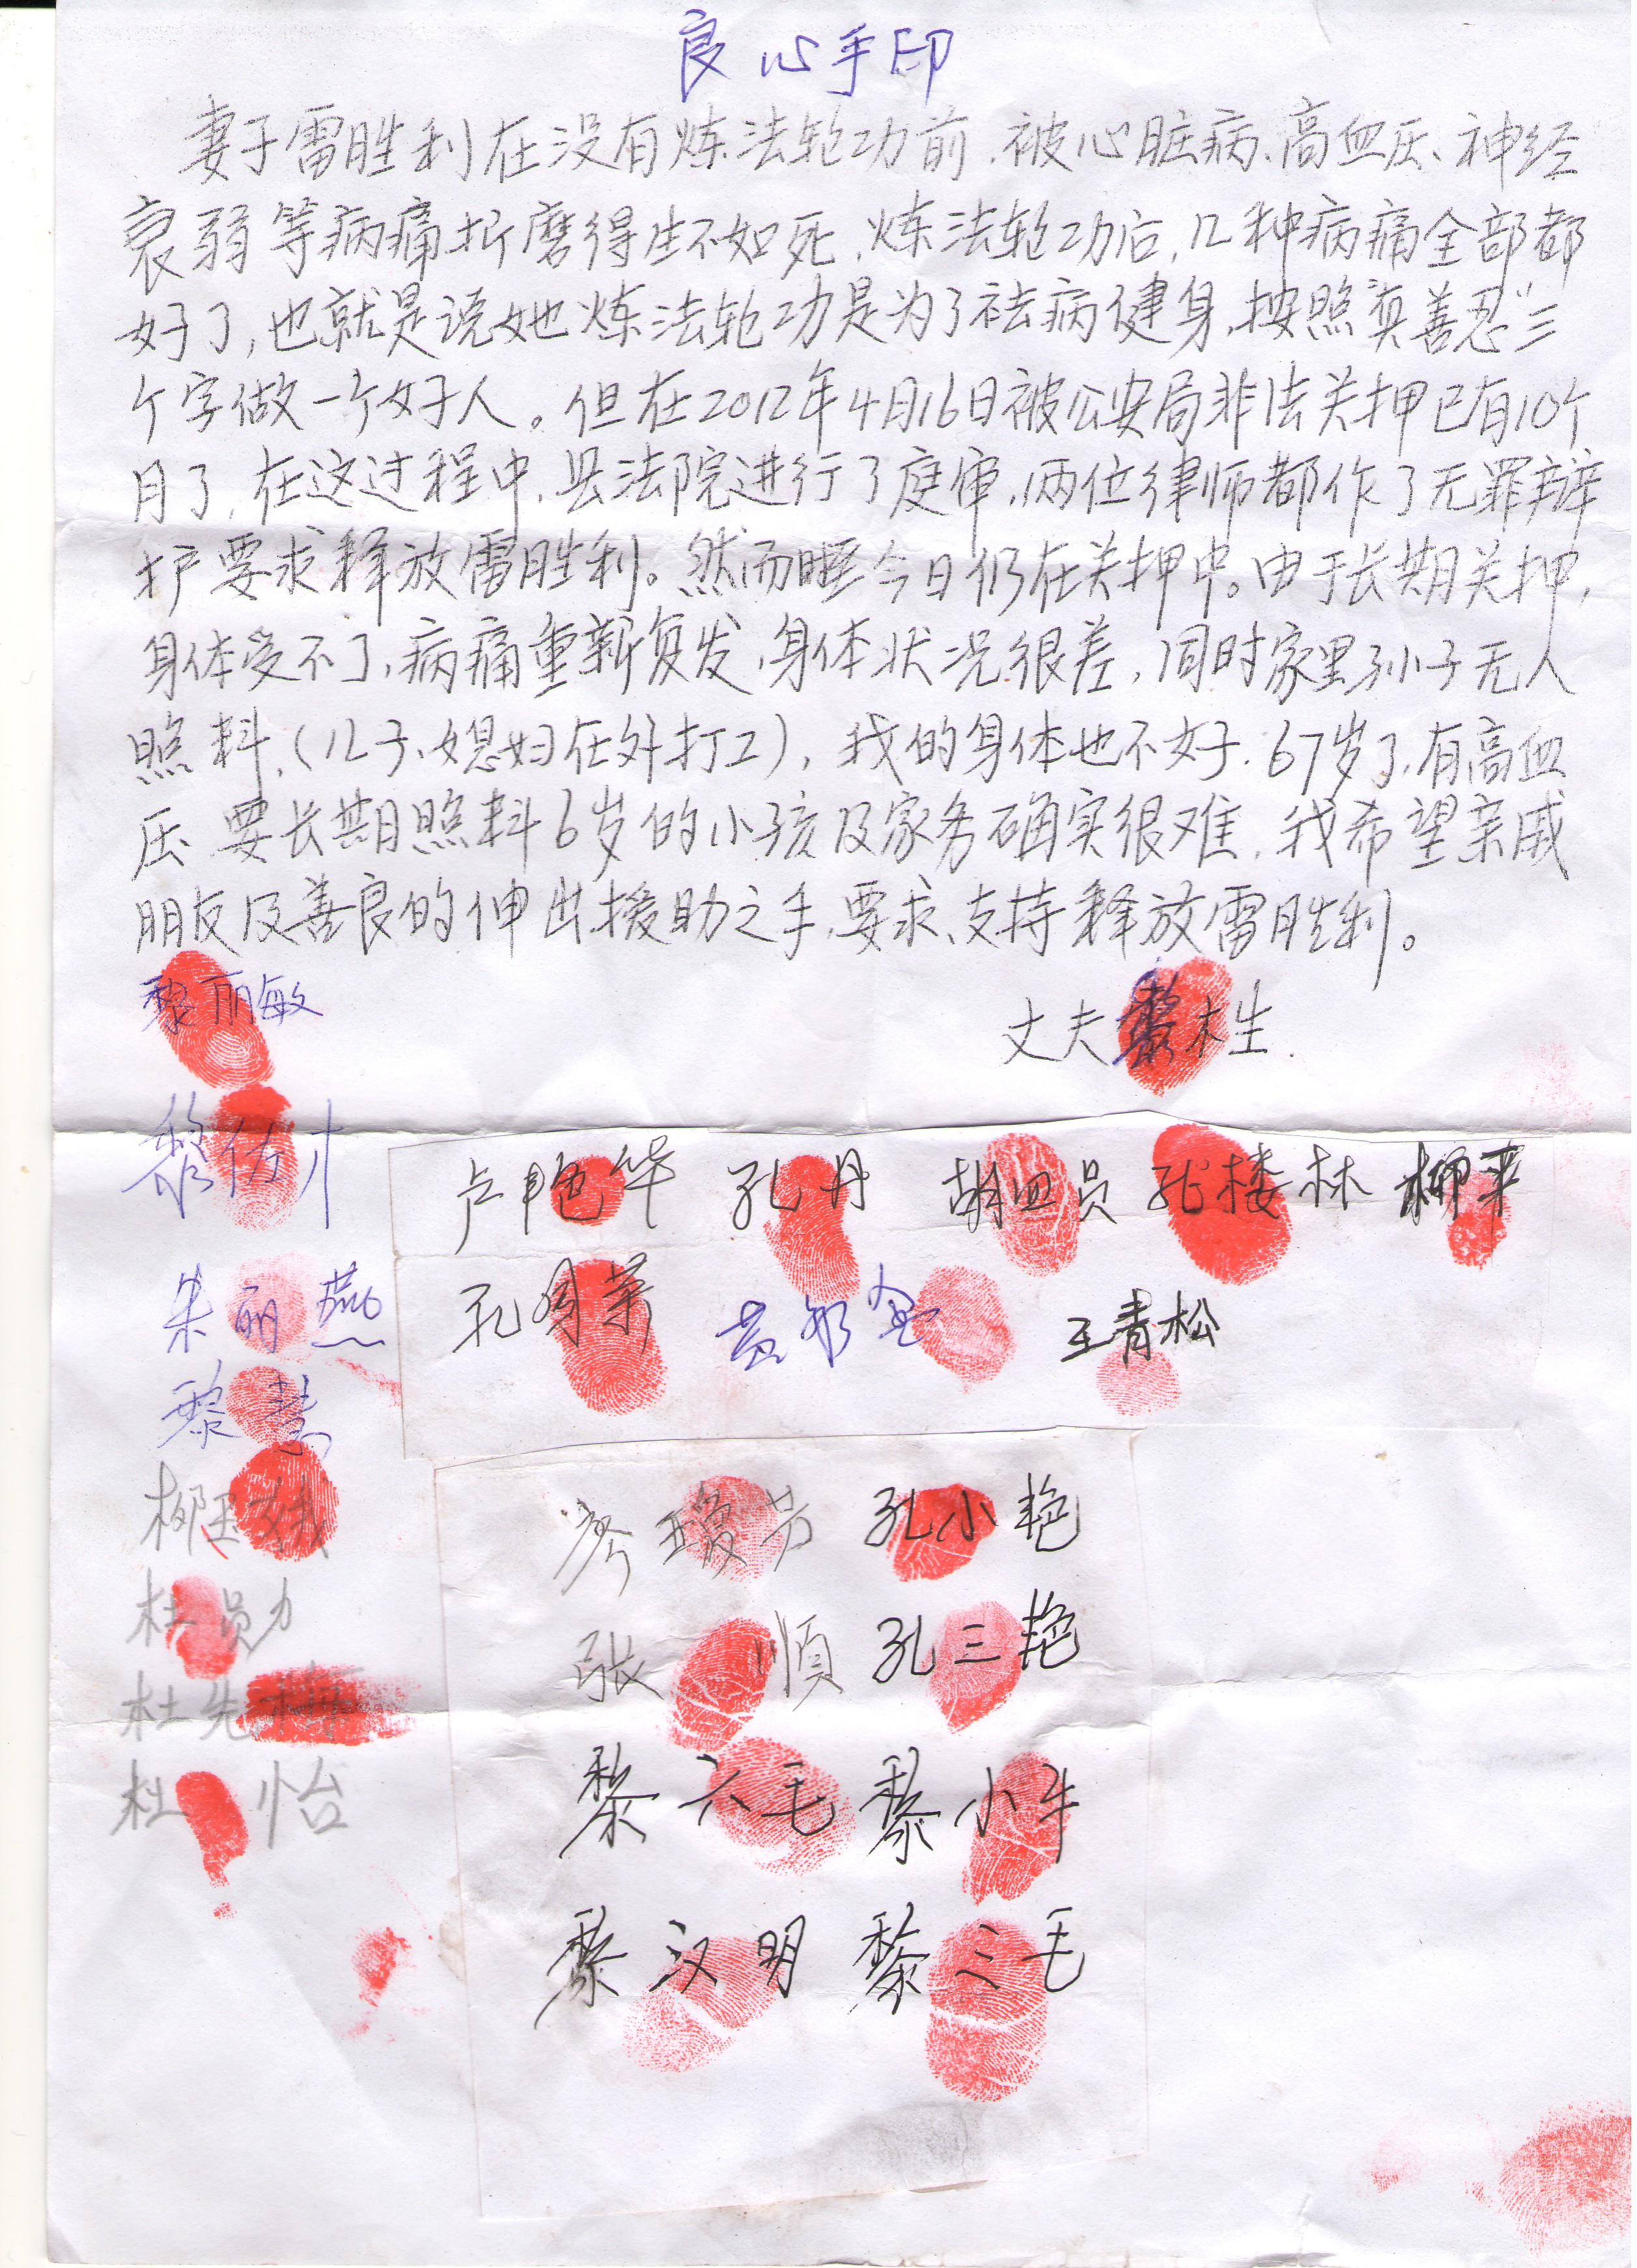 良心手印
妻子雷胜利在没有炼法轮功前、被心脏病、高血压、神经
衰弱等病痛折磨得生不如死，炼法轮功后，几种病痛全部都
好了，也就是说她炼法轮功是为了祛病健身，按照“真善忍”三
个字做一个好人。但在2012年4月16日被公安局非法关押已有10个
月了，在这过程中，县法院进行了庭审，两位律师都作了无罪辩
护要求释放雷胜利。然而 今日仍在关押中。由于长期关押，
身体受不了，病痛重新复发，身体状况很差，同时家里孙子无人
照料，（儿子、媳妇在外打工），我的身体也不好．67岁了，有高血
压、要长期照料6岁的小孩及家务确实很难，我希望亲戚
朋友及善良的伸出援助之手，要求、支持释放雷胜利。
丈夫黎木生
黎丽敏
黎佑才
卢艳华 孔丹 胡四员 孔楼林 柳平
朱丽燕
孔 荣 王青松
黎慧
柳玉娥
琼芳 孔小艳
杜员力
张顺 孔三艳
杜先梅
杜怡
黎六毛 黎小牛
黎汉明 黎三毛